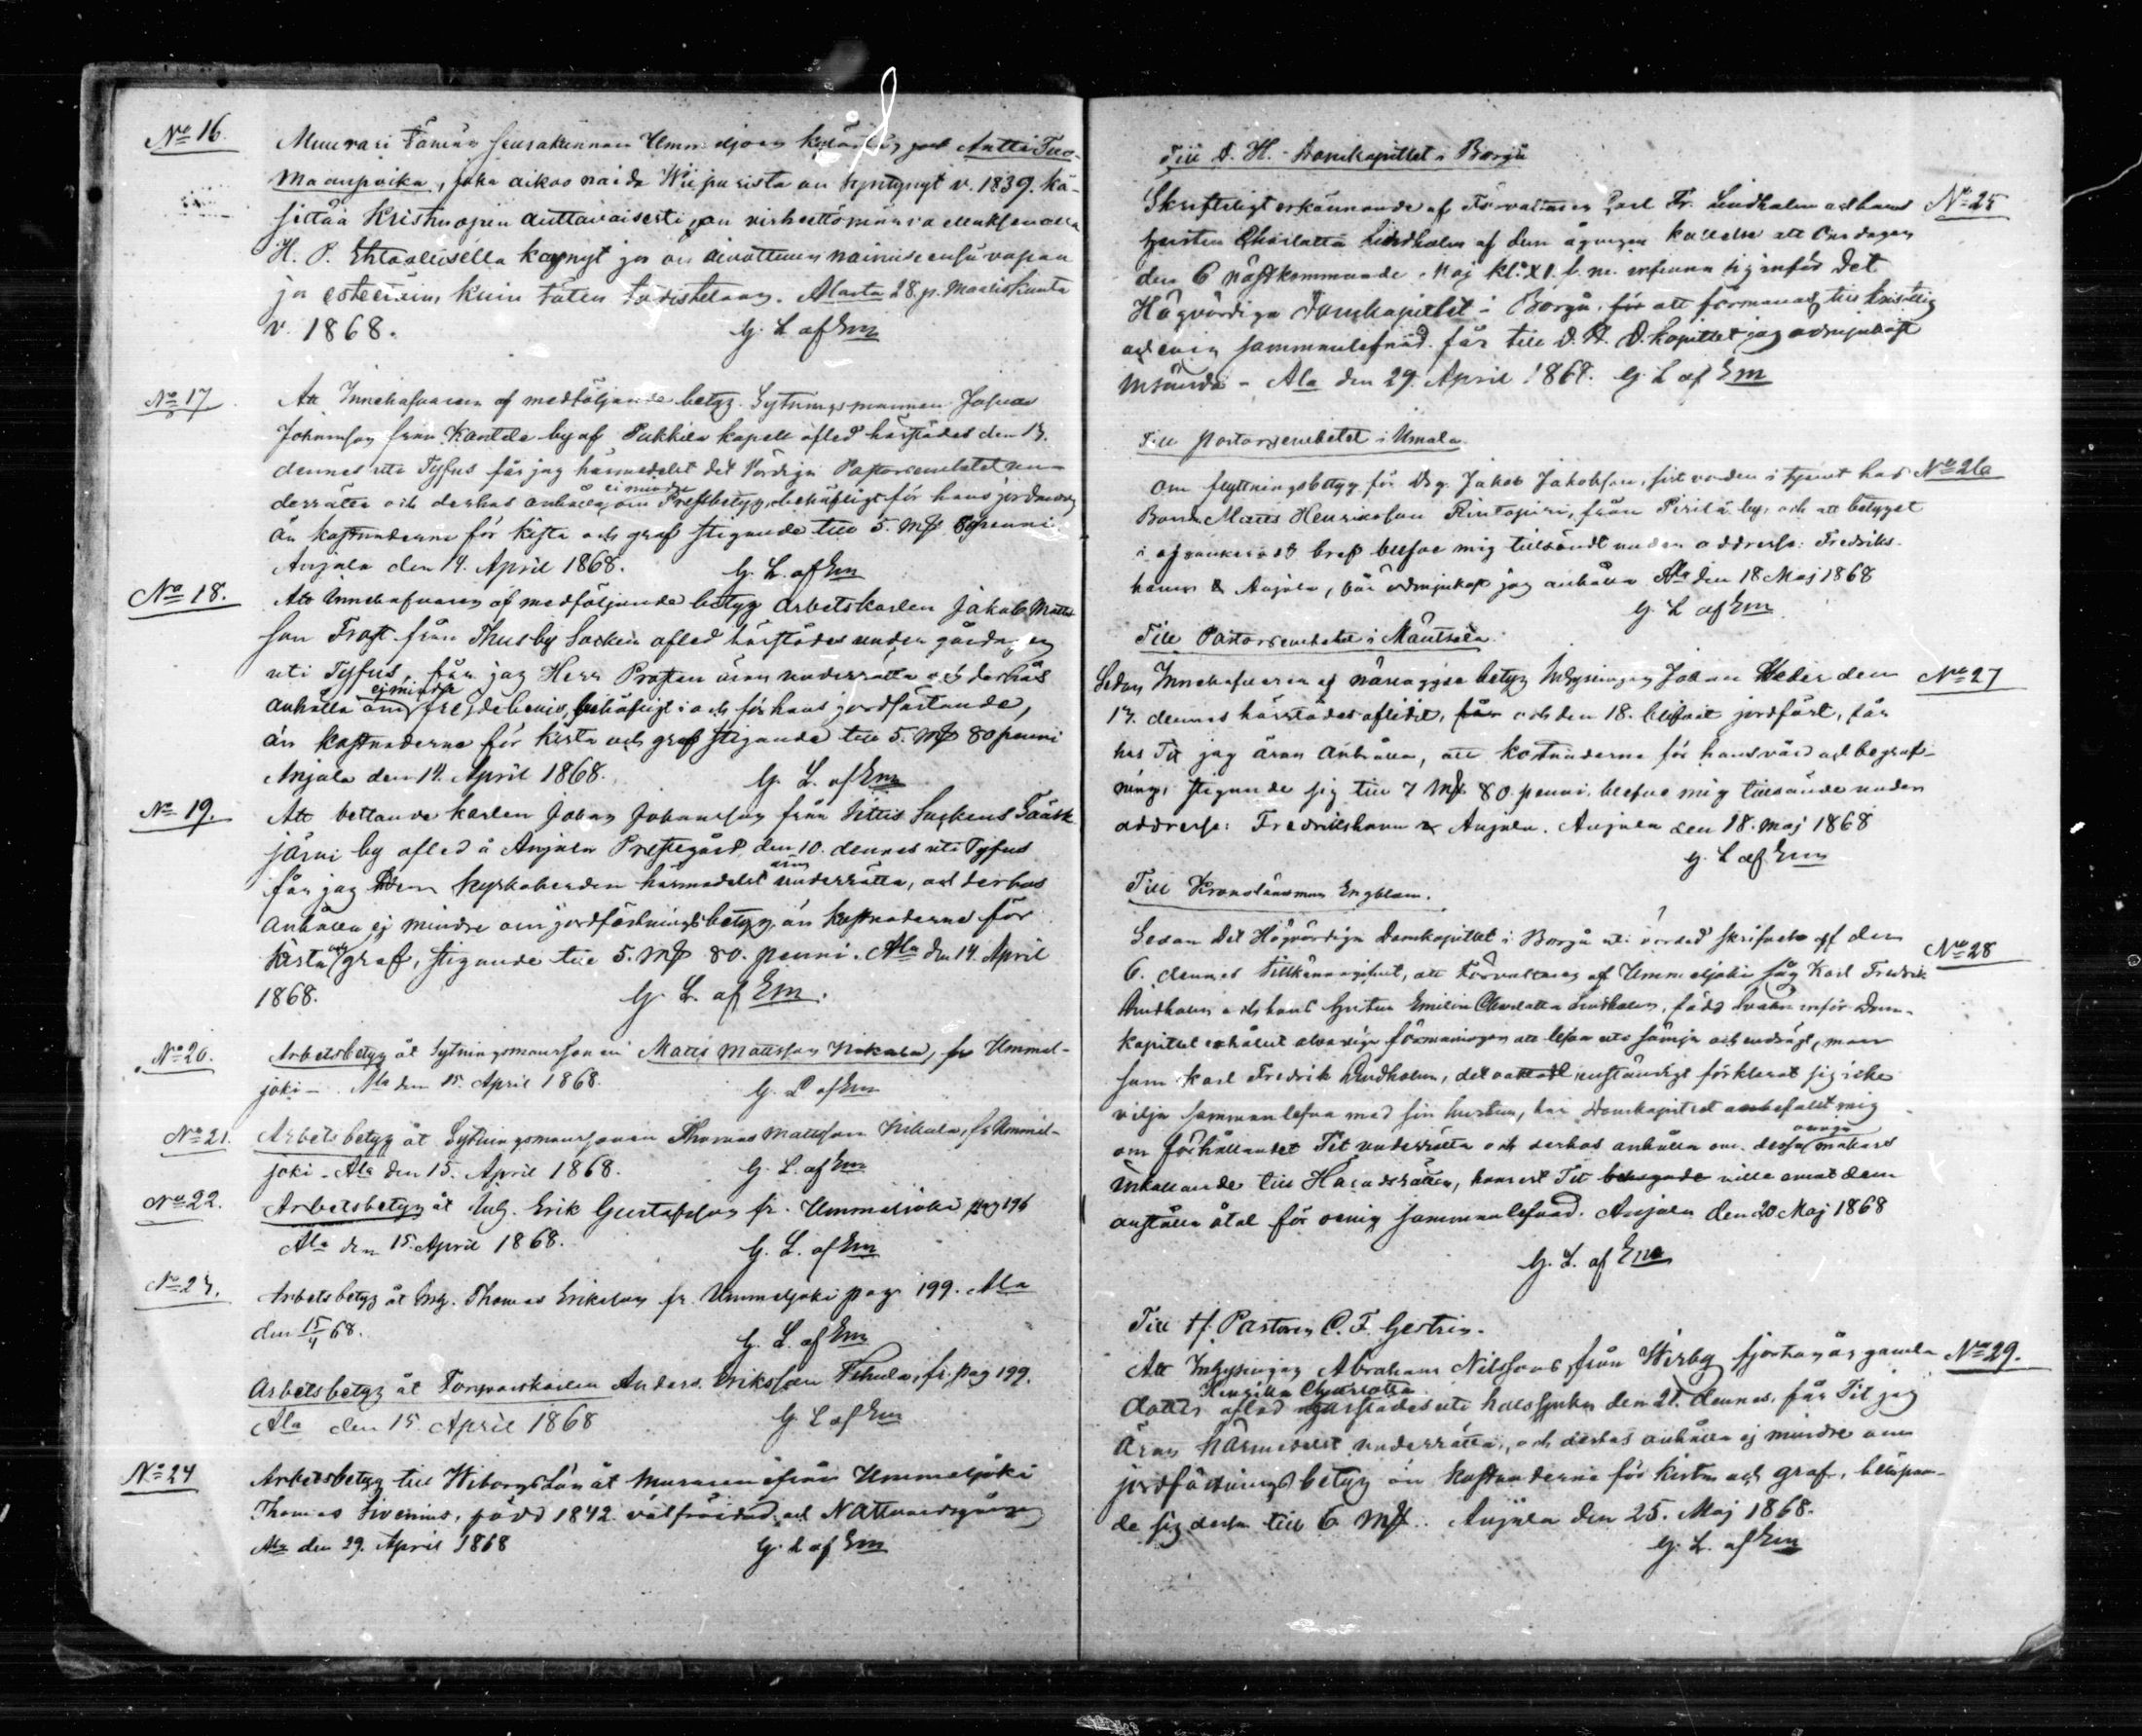 No 16.
Muurari Tämän seurakunnan Ummeljoen kylästä, Antti Tuo-
maanpoika, joka aikoo naida Wiipurista on syntynyt v. 1839. kä-
sittää Kristinopin auttavaisesti, on
H. P. Ehtoollisella käynyt ja on naimiseensa vapaa
ja esteetöin, kuin täten todistetaan. Alasta 28. p. Maaliskuuta
v. 1868. G. L. af Em
No 17
Att Innehafvaren af medföljande betyg Sytningsmannen Josua
Johansson från Kantele by af Pukkila kapell afled härstädes den 13.
dennes uti Tyfus får jag härmedelst det Värdiga Pastorsembetet un-
derrätta och derhos anhålla ej mindre om Prestbetyg, behöfligt för hans jordande,
än kostnaderna för kista och graf stigande till 5. Mk 80 penni
Anjala den 14. April 1868. G. L. af Em
No 18.
Att Innehafvaren af medföljande betyg arbetskarlen Jakob Matts
son Frost från Thusby Socken afled härstädes under gårdagen
uti Tyfus, får jag Herr Prosten äran underrätta och derhos
anhålla ej mindre om frejdebevis, behöfligt för hans jordfästande,
än kostnaderna för kista och graf stigande till 5. Mk 80 penni
Anjala den 14. April 1868. G. L. af Em
No 19.
Att bettlande karlen Johan Johansson från Sittis Sockens Taask
järvi by afled å Anjala Prestegård den 10. dennes uti Tyfus
får jag Herr Kyrkoherden härmedelst äran underrätta, och derhos
anhålla ej mindre om jordfästningsbetyg, än kostnaderna för
kista och graf, stigande till 5. Mk 80. penni. Ala den 14. April
1868. G. L. af Em.
No 20.
Arbetsbetyg åt Sytningsmanssonen Matts Mattsson Nikula, fr Ummel-
joki - Ala den 15. April 1868. G. L af Em
No 21.
Arbetsbetyg åt Sytningsmanssonen Thomas Mattsson Nikula, fr Ummel-
joki - Ala den 15. April 1868. G. L. af Em
No 22.
Arbetsbetyg åt Inh. Erik Gustafsson fr. Ummeljoki pag 196
Ala den 15. April 1868. G. L. af Em
No 23.
Arbetsbetyg åt Inh. Thomas Eriksson fr. Ummeljoki pag 199. Ala
den 15/4 68. G. L. af Em
Arbetsbetyg åt Torparekarlen Anders Eriksson, fr. pag 199.
Ala den 15. April 1868 G. L af Em
No 24
Arbetsbetyg till Wiborgs Län åt Muraren ifrån Ummeljoki
Thomas Sivenius, född 1842 välfräjdad och Nattvardsgången
Ala den 29. April 1868 G. L af Em
Till D. H. Domkapitlet i Borgå
Skriftligt erkännande af Förvaltaren Carl Fr. Lindholm och hans No 25
hustru Charlotta Lindholm af den kallelse att Onsdagen
den 6 nästkommande Maj kl. XI f. m. infinna sig inför Det
Högvördiga Domkapitlet i Borgå, för att förmanas till kristlig
och enig sammanlefnad får till D. H. D. kapitlet jag ödmjukast
insända - Ala den 29. April 1868. G. L af Em
Till Pastorsembetet i Umala
Om flyttningsbetyg för Drg. Jakob Jakobsson, sist varden i tjenst hos No 26
Bonden Matts Henriksson, från Pirilä by, och att betyget
i bref blefve mig tillsändt under addresse: Fredriks-
hamn & Anjala, får ödmjukast jag anhålla Ala den 18 Maj 1868
G. L af Em
Till Pastorsembetet i Mäntsälä.
Sedan Innehafvaren af närlagde betyg Inhysingen Johan Heder den No 27
13. dennes härstädes aflidit, får och den 18. blifvit jordfäst, får
hos Tit jag äran anhålla, att kostnaderna för hans vård och begraf-
ning, stigande sig till 7 Mk. 80. penni blefve mig tillsände under
addresse: Fredrikshamn & Anjala. Anjala den 18. Maj 1868
G. L af Em
Till Kronolänsman Engblom.
Sedan Det Högvördiga Domkapitlet i Borgå uti skrifvelse af den No 28
6. dennes tillkännagifvit, att Förvaltaren af Ummeljoki såg Karl Fredrik
Lindholm och hans hustru Emilia Charlotta Lindholm, född inför Dom-
kapitlet erhållit alvarliga förmaningar att lefva uti sämja och endrägt, men
som Karl Fredrik Lindholm, det oaktadt, enständigt förklarat sig icke
vilja sammanlefva med sin hustru, har Domkapitlet anbefallt mig
om förhållandet Tit underrätta och derhos anhålla om dessa makars
inkallande till Häradsrätten, hvarest Tit ville emot dem
anställa åtal för oenig sammanlefnad. Anjala den 20 Maj 1868
G. L. af Em
Till H. Pastoren C. F. Gestrin.
Att Inhysingen Abraham Nilssons från Wirby fjorton år gamla No 29.
dotter Henrika Charlotta afled härstädes uti halssjuka den 21. dennes, får Tit jag
äran härmedelst underrätta, och derhos anhålla ej mindre om
jordfästningsbetyg än kostnaderna för kista och graf, belöpan-
de sig dessa till 6 Mk. Anjala den 25. Maj 1868.
G. L. af Em